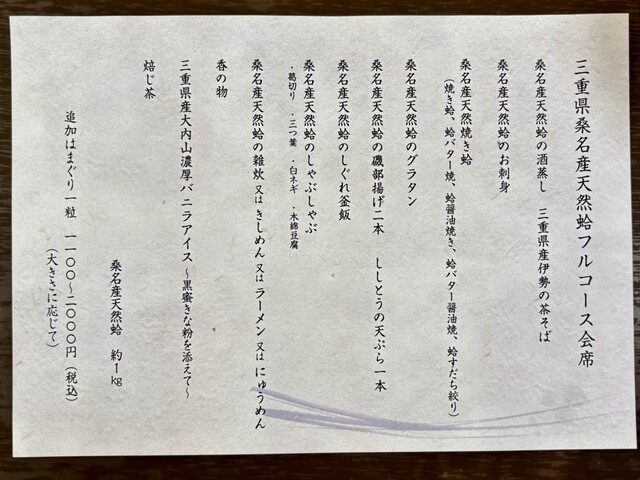 三重県桑名産天然蛤フルコース会席
桑名産天然蛤の酒蒸し　三重県産伊勢の茶そば
桑名産天然蛤のお刺身
桑名産天然焼き蛤
（焼き蛤、蛤バター焼、蛤醤油焼き、蛤バター醤油焼、蛤すだち絞り）
桑名産天然蛤のグラタン
桑名産天然蛤の磯部揚げ二本　ししとうの天ぷら一本
桑名産天然蛤のしぐれ釜飯
桑名産天然蛤のしゃぶしゃぶ
・葛切り　・三つ葉　・白ネギ　・木綿豆腐
桑名産天然蛤の雑炊 又は きしめん 又は ラーメン 又は にゅうめん
香の物
三重県産大内山濃厚バニラアイス ～黒蜜きな粉を添えて～
焙じ茶
桑名産天然蛤　約１kg
追加はまぐり一粒　一一〇〇～二〇〇〇円（税込）
（大きさに応じて）